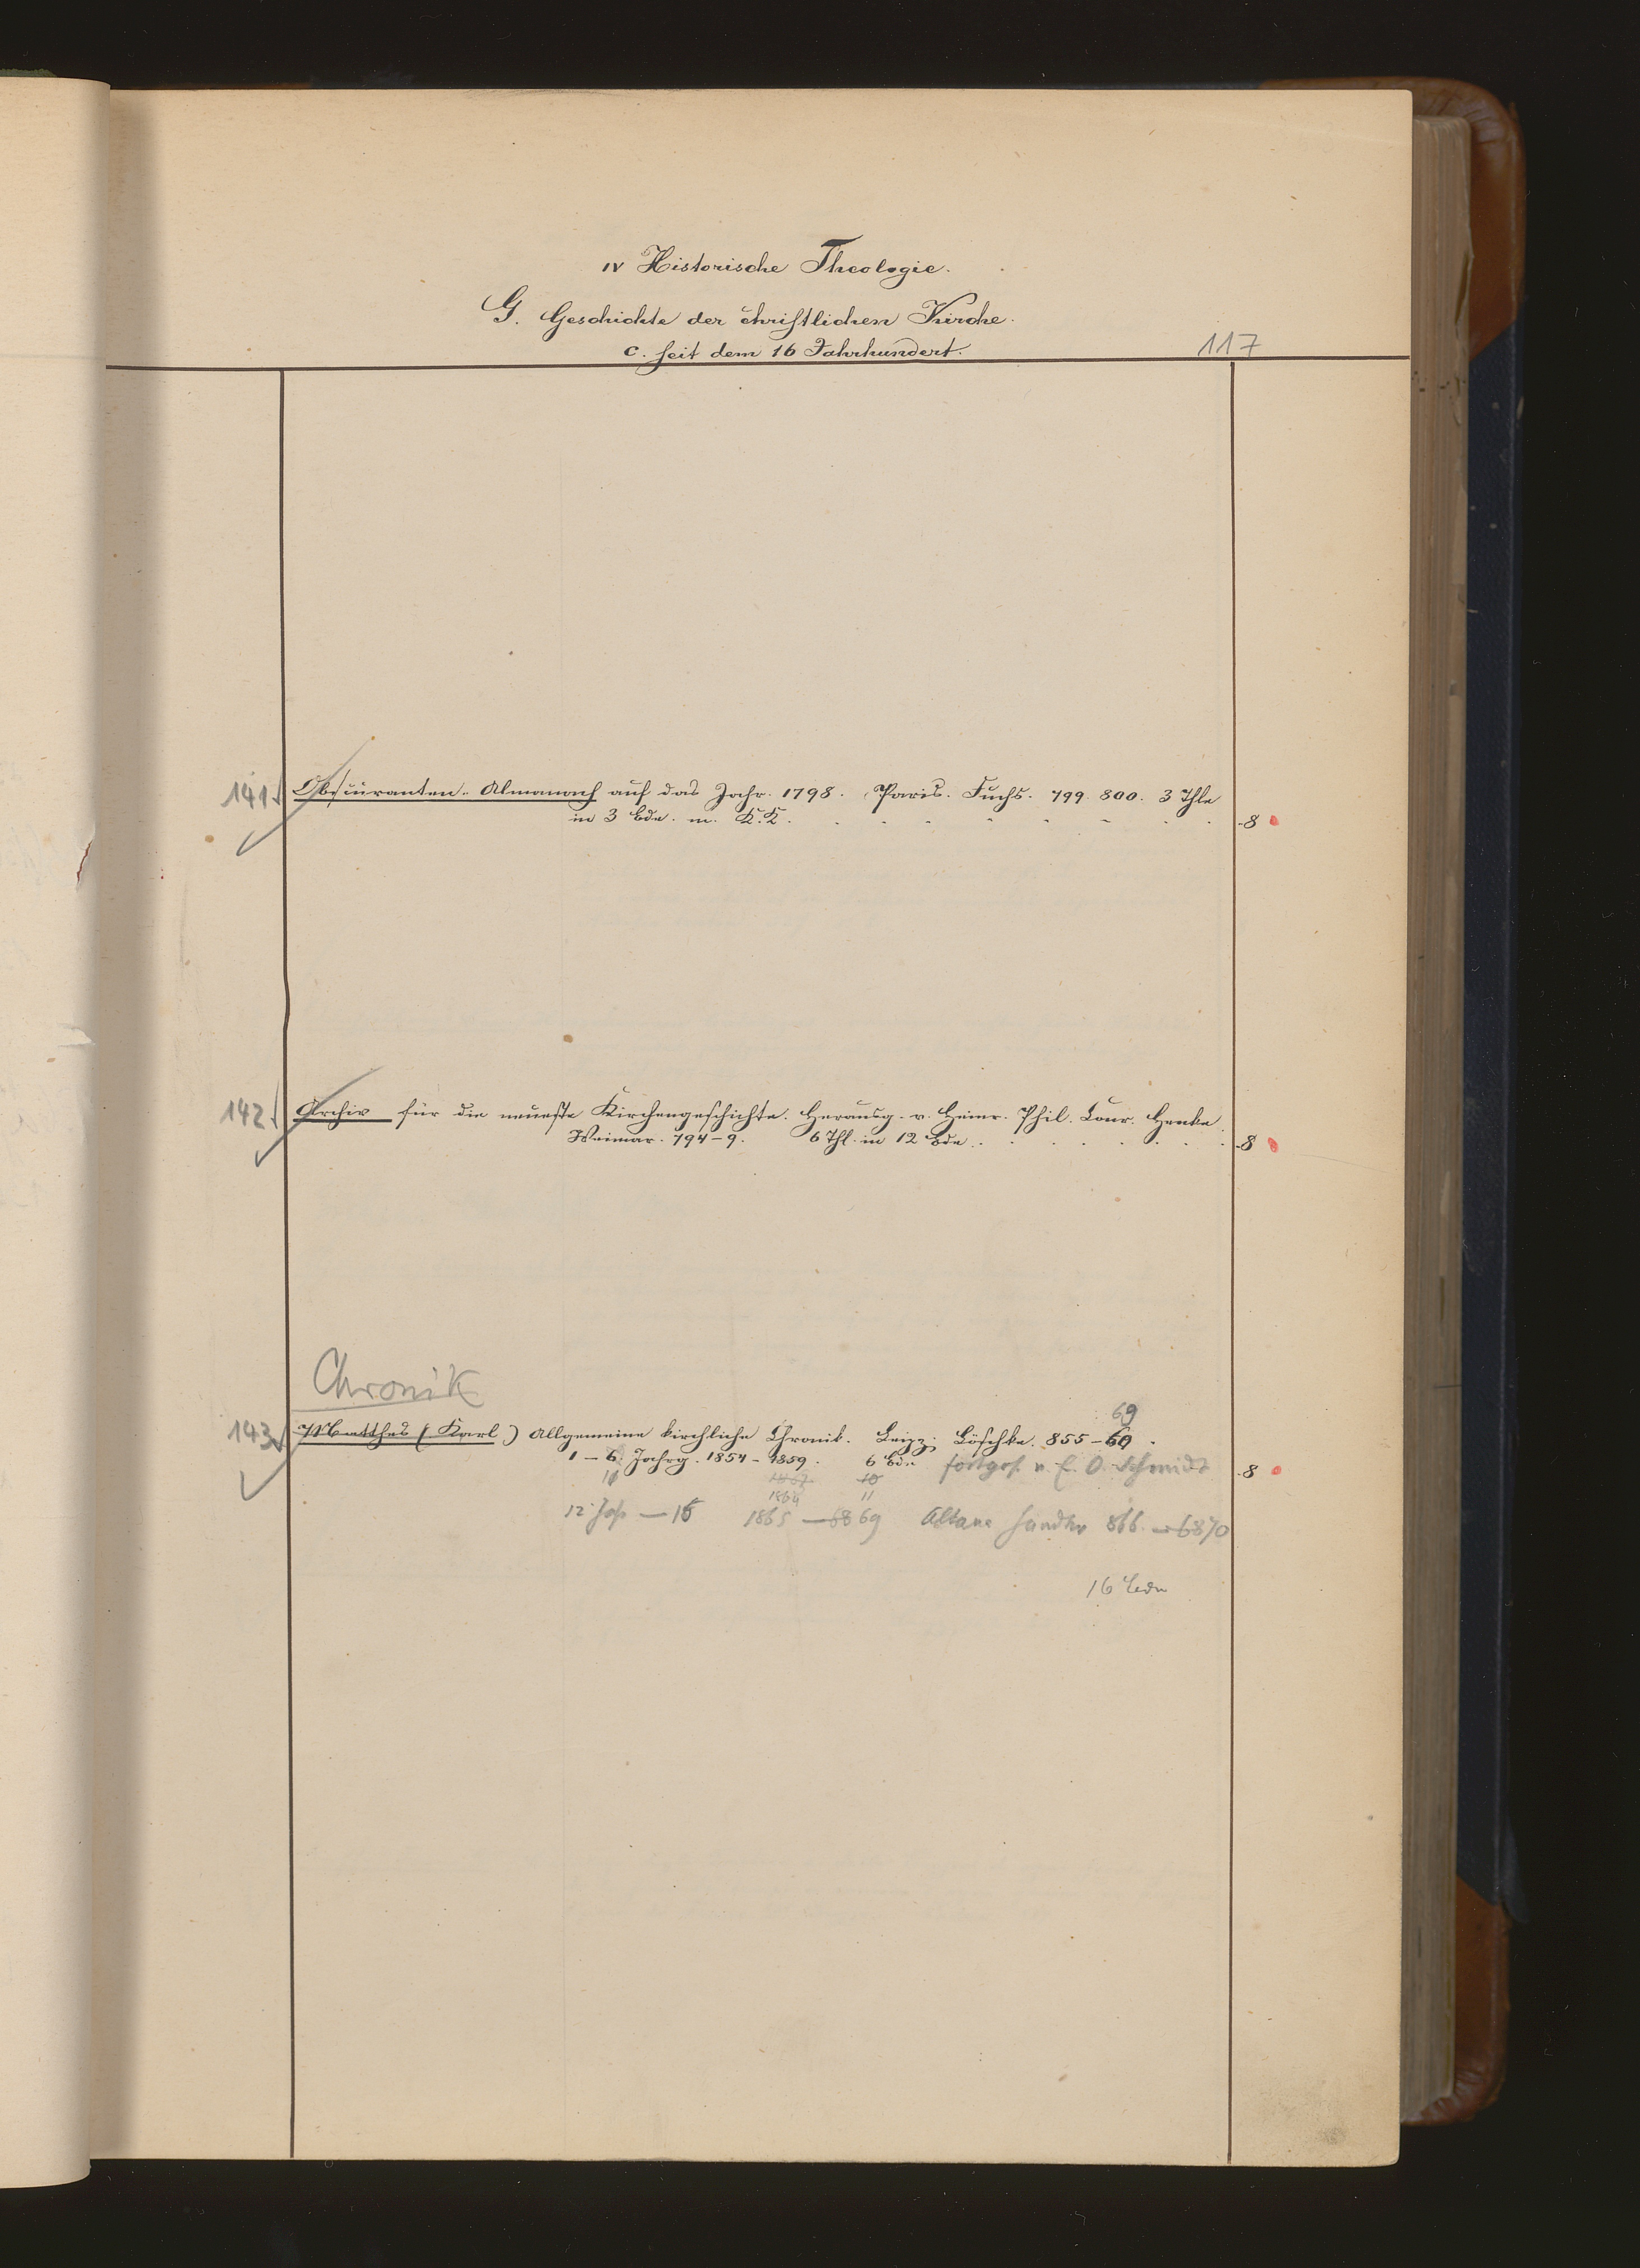 IV Historische Theologie.
G. Geschichte der christlichen Kirche.
c. seit dem 16 Jahrhundert.
117
141 Obscuranten-Almanach auf das Jahr 1798. Paris. Fuchs. 799. 800. 3 Thle
in 3 Bde. m. K.K. 8
142 Archiv für die neueste Kirchengeschichte. Herausg. v. Heinr. Phil. Conr. Henke.
Weimar. 794-9. 6 Thl. in 12 Bde. 8
Chronik
69
143 Matthes (Karl) Allgemeine kirchliche Chronik. Leipz. Löschke. 855-60.
1-6. Jahrg. 1854-1859. 6 Bde fortges. v. Schmidt 8
11 10
1864 11
12 Jah — 16 1865 — 69 Altona 866. 870
16 Bde